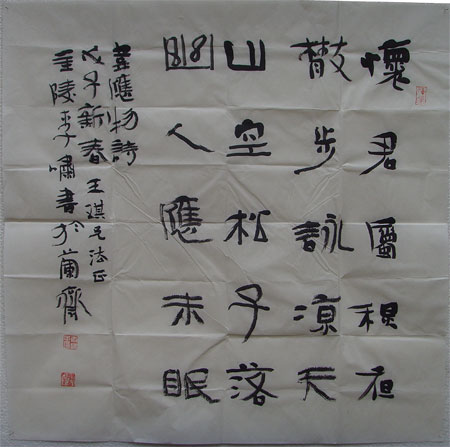 懷君屬秋夜
散步詠涼天
山空松子落
幽人應未眠
韋應物詩
戊子新春 王琪兄法正
金陵李嘯書於蘭齋